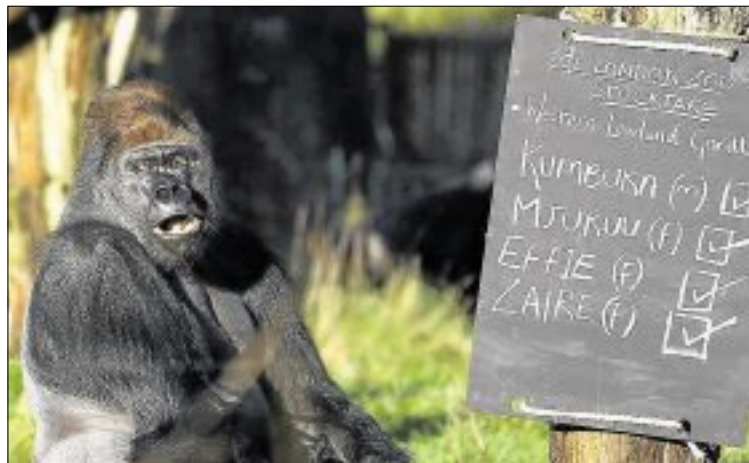 ZSL LONDON ZOO
STOCKTAKE
- Western Lowland Gorill
KUMBUKA (m)
MJUKUU (f)
EFFIE (f)
ZAIRE (f)